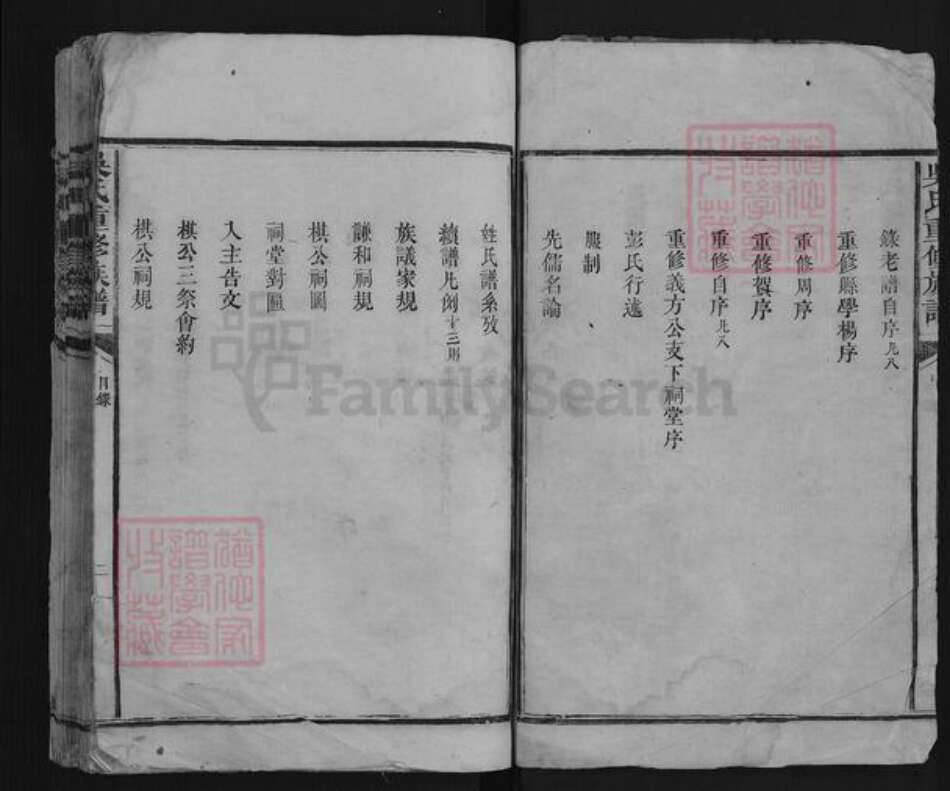 吳氏重修族譜
錄老譜自序凡八
重修縣學楊序
重修周序
重修賀序
重修自序凡八
重修義方公支下祠堂序
彭氏行述
服制
先儒名論
姓氏譜系攷
續譜凡例十三則
族議家規
謙和祠規
棋公祠圖
祠堂對匾
入主告文
棋公三祭會約
棋公祠規
吳氏重修族譜
目錄
二
FamilySearch